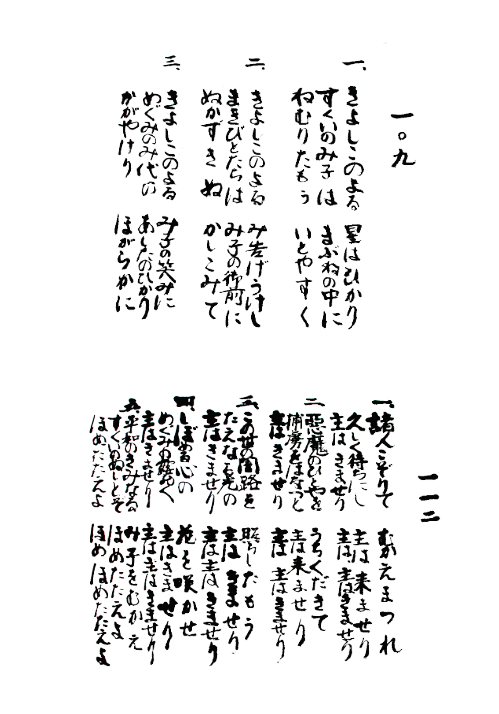 一〇九
一、きよしこのよる 星はひかり
すくいのみ子は まぶねの中に
ねむりたもう いとやすく
二、きよしこのよる み告げうけし
まきびとたちは み子の御前に
ぬかずきぬ かしこみて
三、きよしこのよる み子の笑みに
めぐみのみ代の あしたのひかり
かがやけり ほがらかに
一一二
一、諸人こぞりて むかえまつれ
久しく待ちにし 主は来ませり
主はきませり 主は主はきませり
二、悪魔のひとやを うちくだきて
捕虜をはなつと 主は来ませり
主はきませり 主は主はきませり
三、この世の闇路を 照らしたもう
たえなる光の 主はきませり
主はきませり 主は主はきませり
四、しぼめる心の 花を咲かせ
めぐみの露おく 主はきませり
主はきませり 主は主はきませり
五、平和のきみなる み子をむかえ
すくいのぬしとぞ ほめたたえよ
ほめたたえよ ほめほめたたえよ